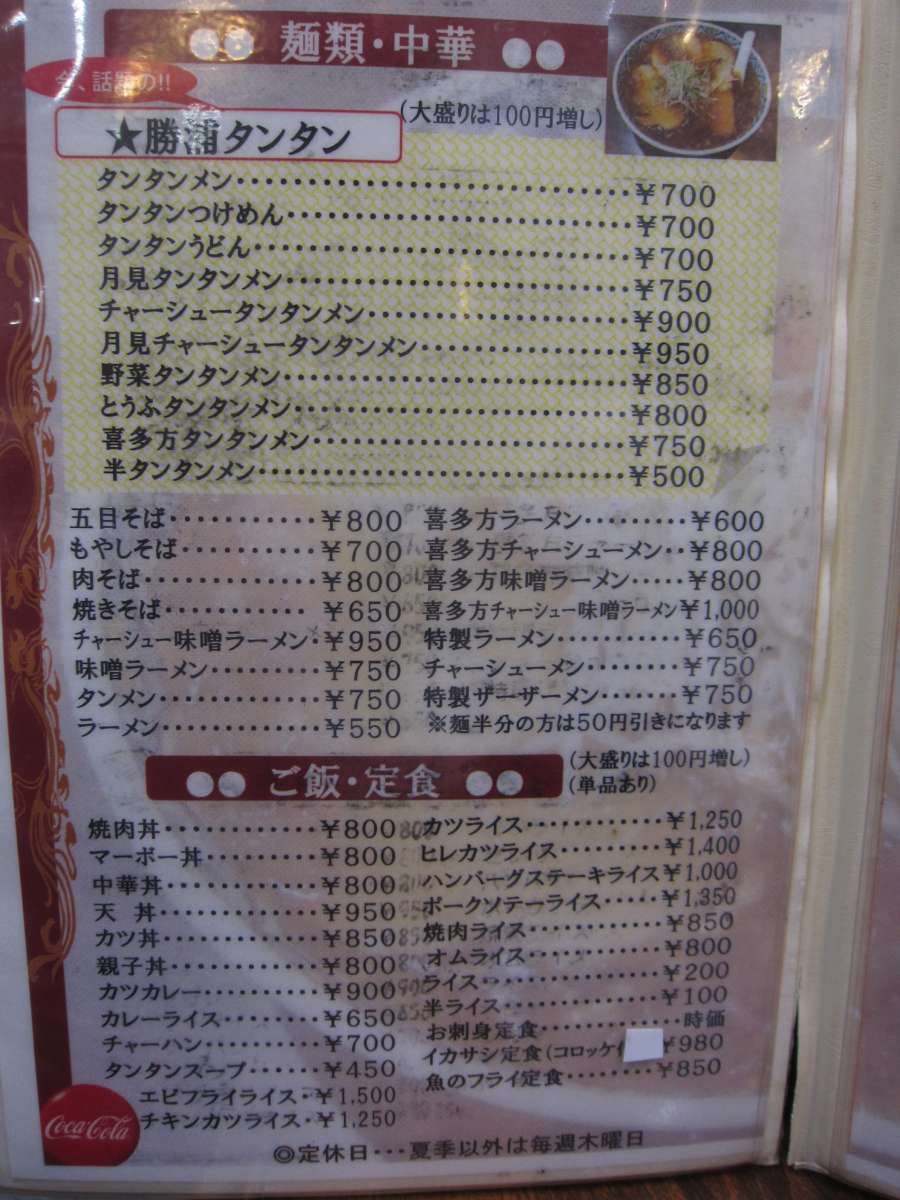 麺類・中華
今、話題の!!
(大盛りは100円増し)
★勝浦タンタン
タンタンメン・・・¥700
タンタンつけめん・・・¥700
タンタンうどん・・・¥700
月見タンタンメン・・・¥750
チャーシュータンタンメン・・・¥900
月見チャーシュータンタンメン・・・¥950
野菜タンタンメン・・・¥850
とうふタンタンメン・・・¥800
喜多方タンタンメン・・・¥750
半タンタンメン・・・¥500
五目そば・・・¥800
もやしそば・・・¥700
肉そば・・・¥800
焼きそば・・・¥650
チャーシュー味噌ラーメン・¥950
味噌ラーメン・・・¥750
タンメン・・・¥750
ラーメン・・・¥550
喜多方ラーメン・・・¥600
喜多方チャーシューメン・・¥800
喜多方味噌ラーメン・・・¥800
喜多方チャーシュー味噌ラーメン¥1,000
特製ラーメン・・・¥650
チャーシューメン・・・¥750
特製ザーザーメン・・・¥750
※麺半分の方は50円引きになります
ご飯・定食
(大盛りは100円増し)
(単品あり)
焼肉丼・・・¥800
マーボー丼・・・¥800
中華丼・・・¥800
天 丼・・・¥950
カツ丼・・・¥850
親子丼・・・¥800
カツカレー・・・¥900
カレーライス・・・¥650
チャーハン・・・¥700
タンタンスープ・・・¥450
エビフライライス・¥1,500
チキンカツライス・¥1,250
カツライス・・・¥1,250
ヒレカツライス・・・¥1,400
ハンバーグステーキライス¥1,000
ポークソテーライス・・・¥1,350
焼肉ライス・・・¥850
オムライス・・・¥800
ライス・・・¥200
半ライス・・・¥100
お刺身定食・・・時価
イカサシ定食(コロッケ ¥980
魚のフライ定食・・・¥850
◎定休日・・・夏季以外は毎週木曜日
Coca-Cola